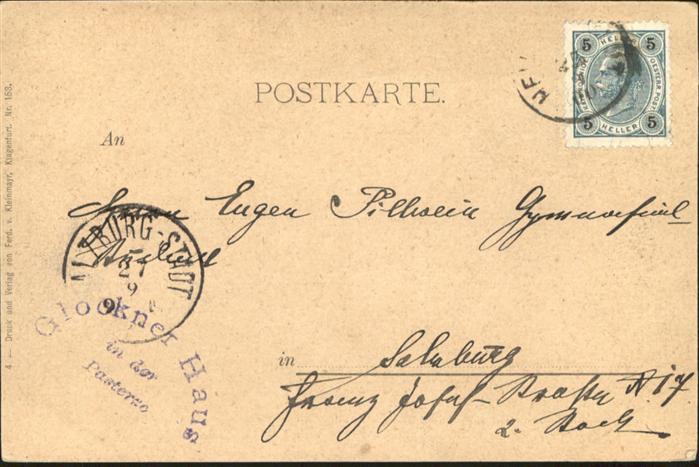 POSTKARTE.
5 HELLER 5
5 HELLER 5
An
Herrn Eugen Pillwein Gymnasial
SALZBURG-STADT
27
9
Glockner Haus
in der
Pasterze
in Salzburg
Franz Josef-Straße N. 17
2. Stock
4 — Druck und Verlag von Ferd. v. Kleinmayr, Klagenfurt. Nr. 153.